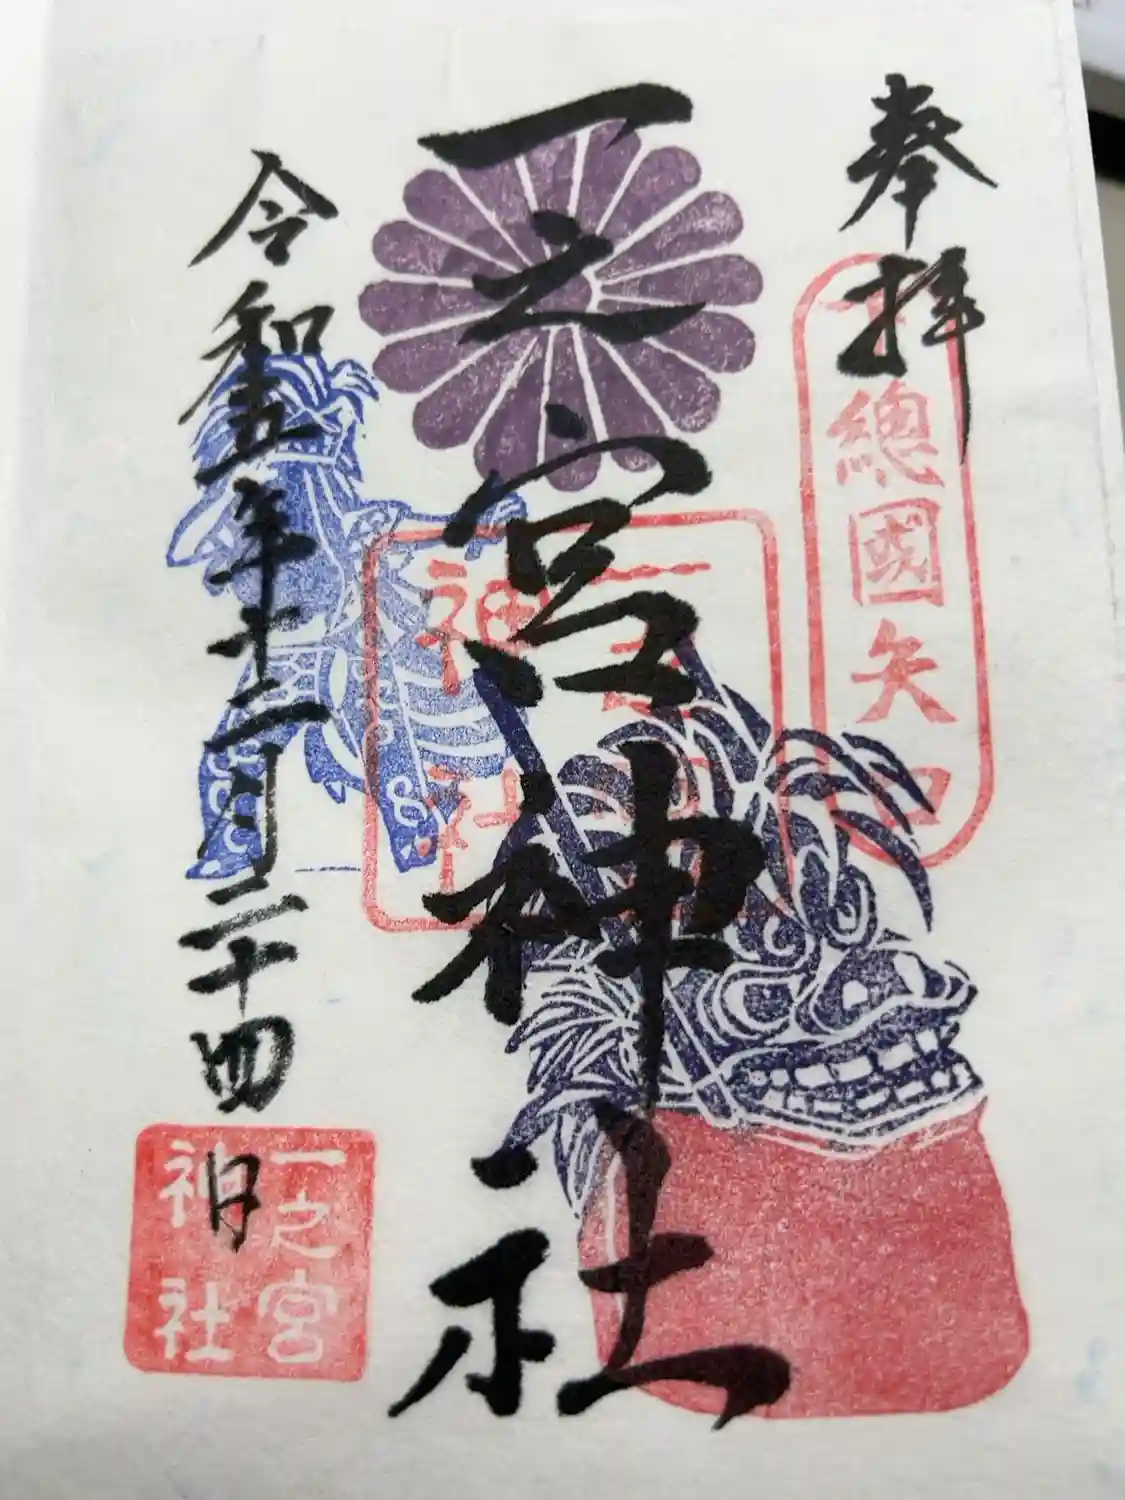 奉拝
總國矢口
一之宮神社
一之宮
神社
令和五年十二月二十四日
一之宮
神社